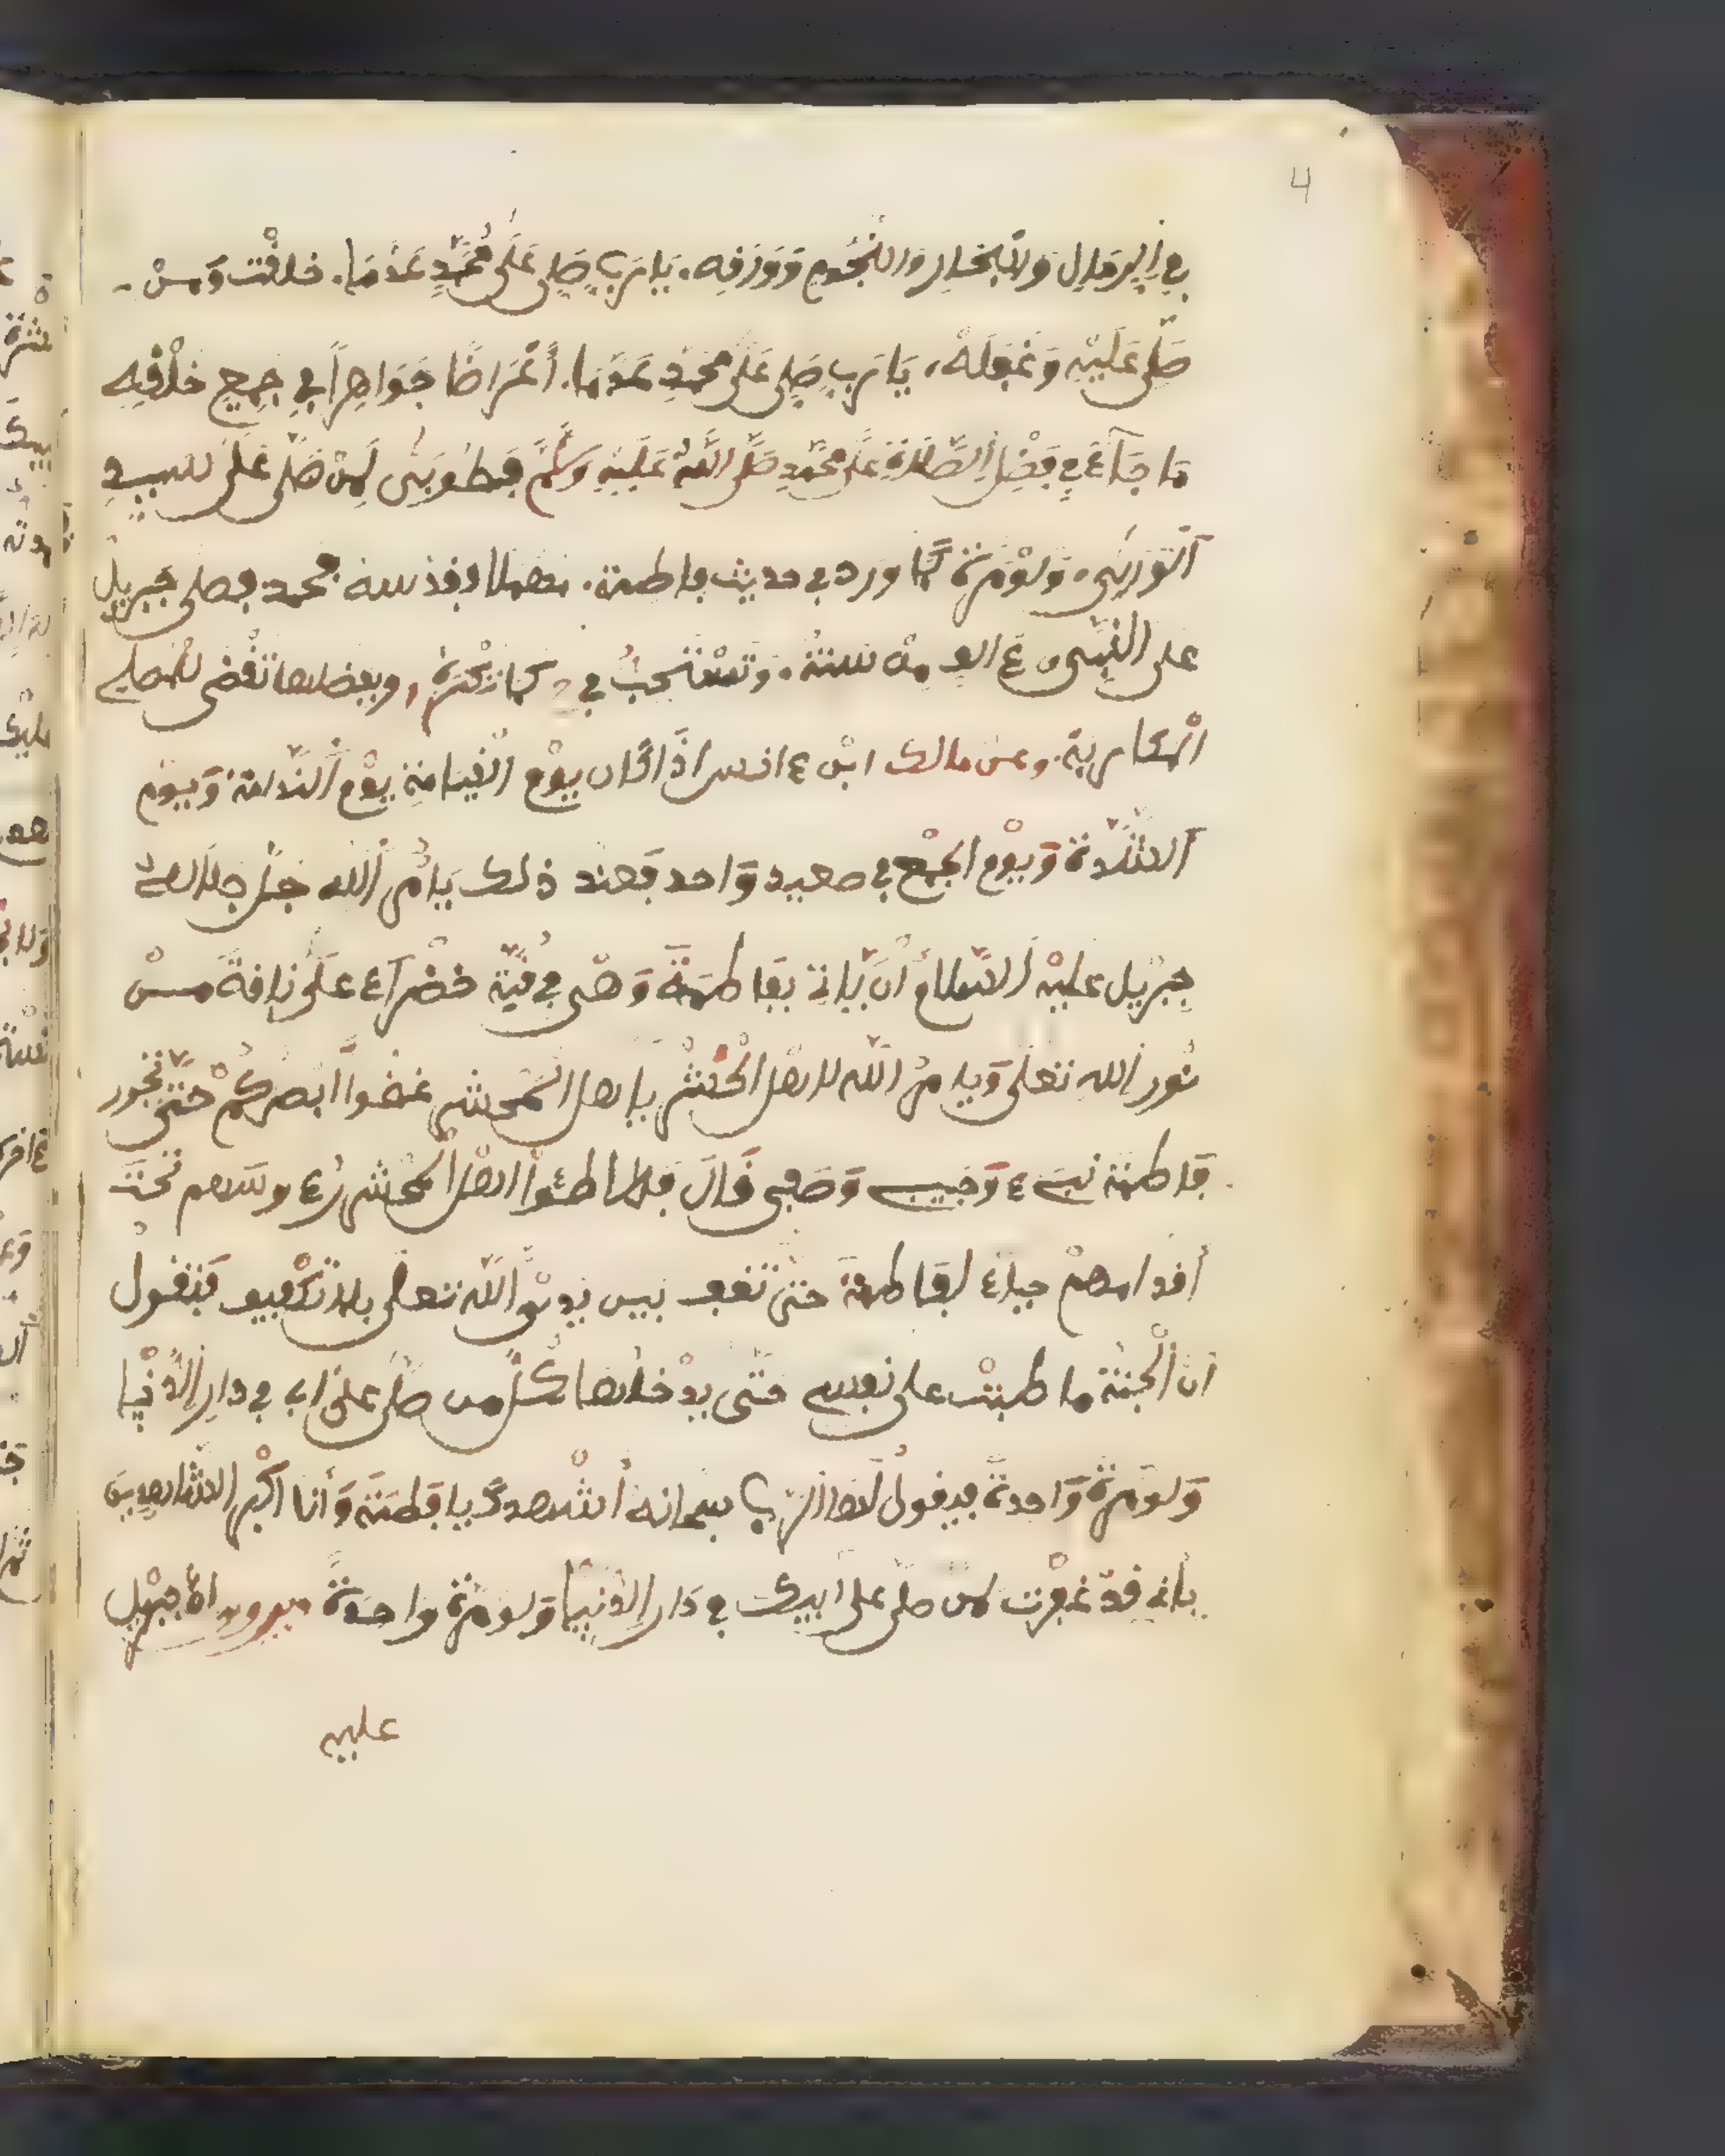 4
في الرمال والبحار والنجوم وورقه. يا رب صل على محمد عدد ما. خلقت ومن
صلى عليه وغفله، يا رب صل على محمد عدد ما. أعراضا جواهرا في جميع خلقه
ما جآء في فضل الصلاة على محمد صلى الله عليه وسلم فطوبى لمن صلى على
الورى ولومرة كما ورد في حديث فاطمة. محمد فصلى جبريل
على النبي الف من سنة. وتستحب في وبفضلها تقضى للمصلي
وعن مالك ابن انس اذا كان يوم القيامة يوم الندامة ويوم
الشدة ويوم الجمع في صعيد واحد فعند ذلك يامر الله جل جلاله
جبريل عليه السلام أن ياتي بفاطمة وهي في قبة خضرآء على ناقة من
نور الله تعلى ويامر الله لاهل المحشر يا اهل المحشر غضوا ابصركم حتى تجوز
فاطمة وصفي قال فطاطئوا اهل المحشر رءوسهم تحت
أقدامهم حياء لفاطمة حتى تقف بين يدي الله تعلى بلا تكييف فتقول
ان الجنة ما طبت على نفسي حتى يدخلها كل من صلى على اب في دار الدنيا
ولومرة واحدة فيقول لها الرب سبحانه أشهدك يا فطمة وأنا اكبر الشاهدين
باني قد غفرت لمن صلى على ابيك في دار الدنيا ولومرة واحدة جبريل
عليه